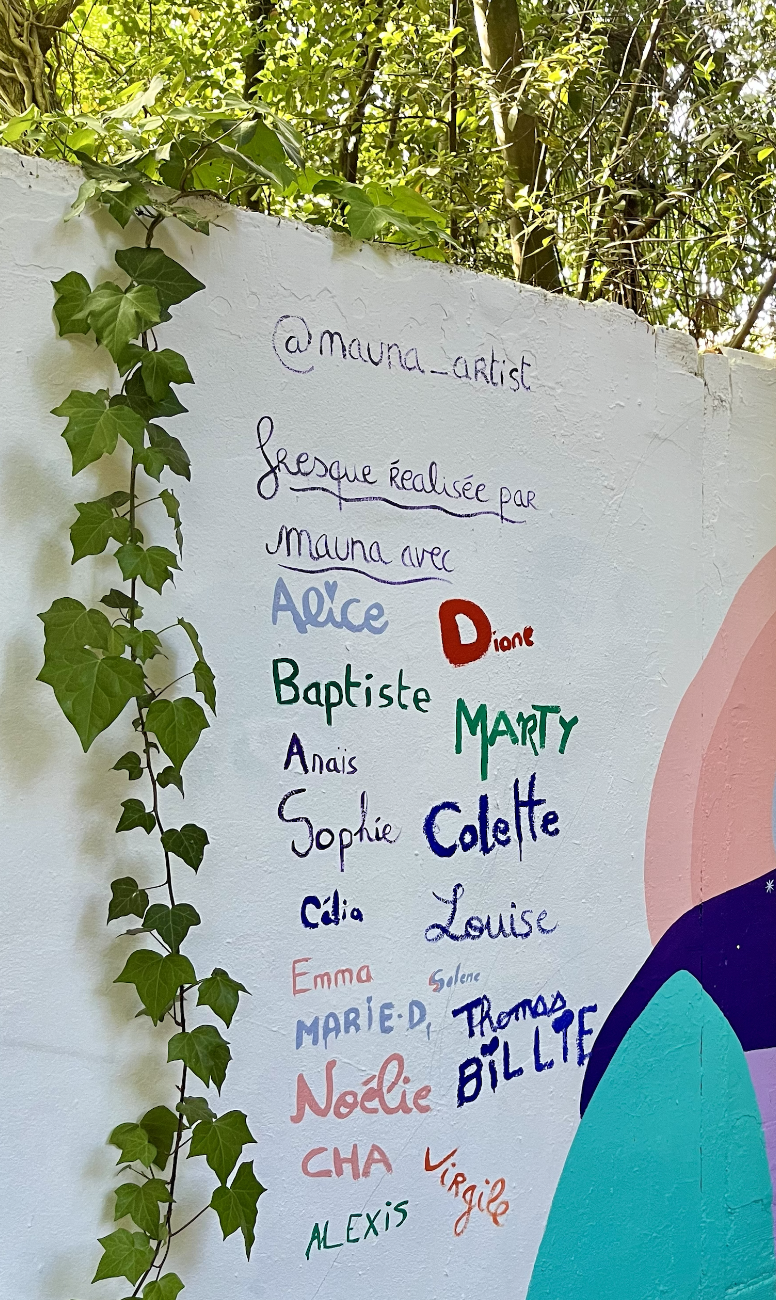 @mauna_artist
fresque réalisée par
mauna avec
Alice
Diane
Baptiste
MARTY
Anaïs
Sophie
Colette
Célia
Louise
Emma
Solene
MARIE-D,
Thomas
BiLLiE
Noélie
CHA
Virgile
ALEXiS